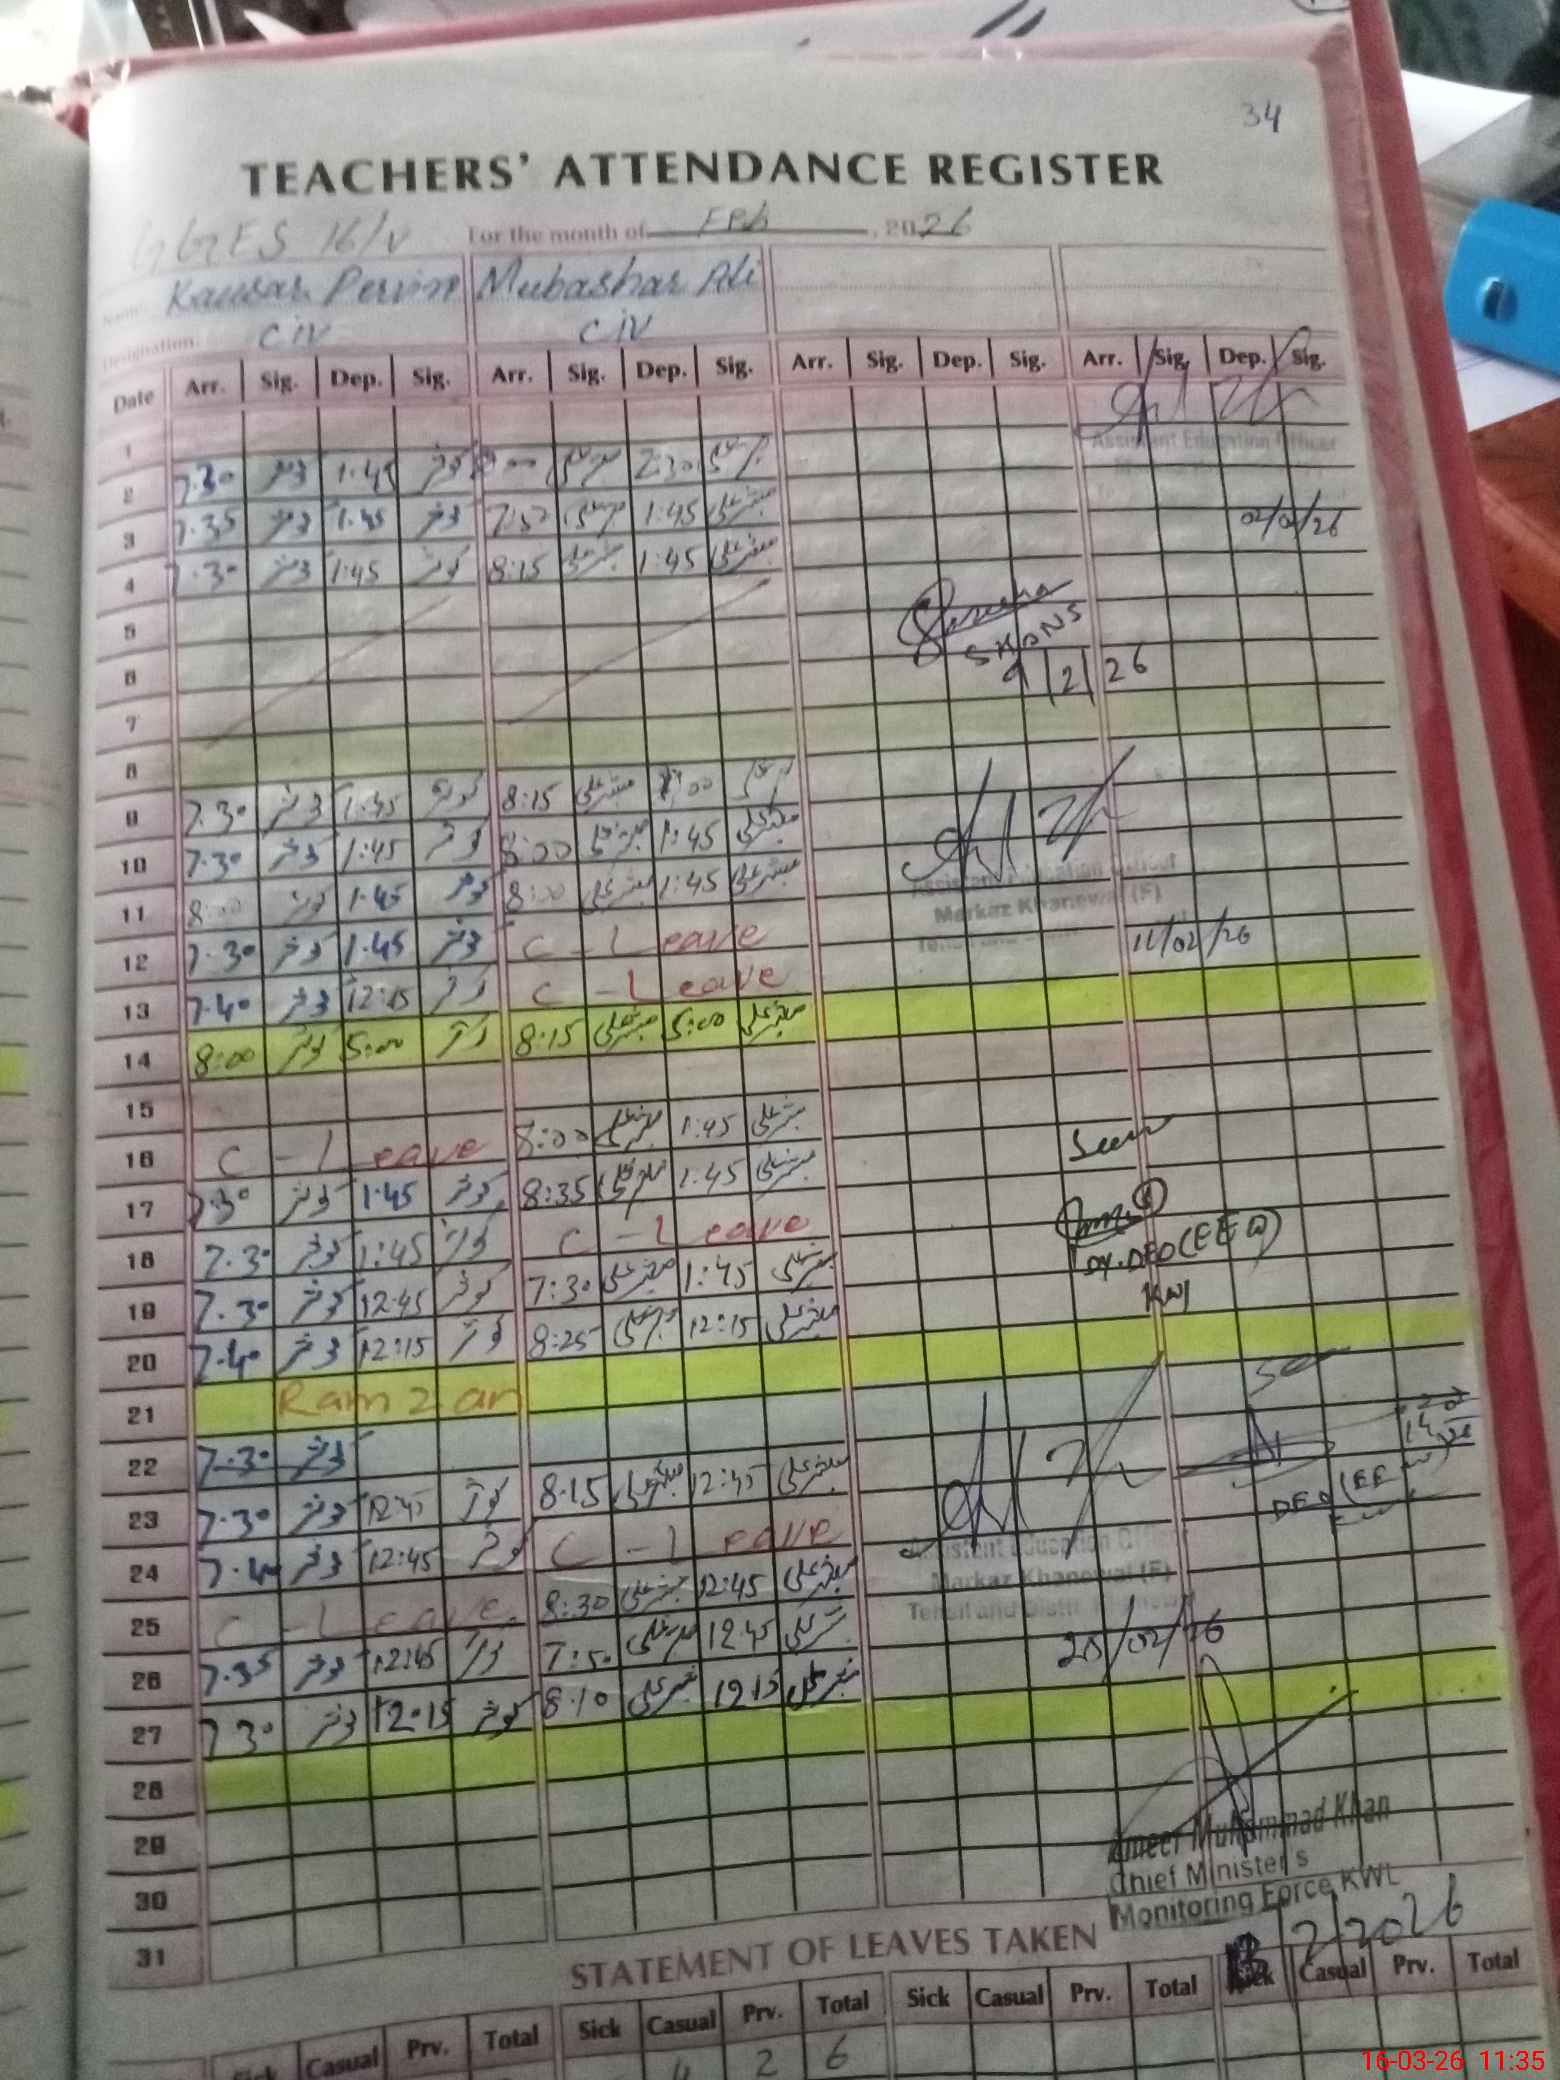 34
TEACHERS' ATTENDANCE REGISTER
GGES 16/V For the month of Feb, 2026
Name: Kausar Pervin Mubashar Ali
Designation: CIV CIV
Date Arr. Sig. Dep. Sig. Arr. Sig. Dep. Sig. Arr. Sig. Dep. Sig. Arr. Sig. Dep. Sig.
Assistant Education Officer
1
2 7.30 کوثر 1:45 کوثر مبشر علی 2:30 مبشر علی
3 7.35 کوثر 1:45 کوثر 7:50 مبشر علی 1:45 مبشر علی 02/02/26
4 7.30 کوثر 1:45 کوثر 8:15 مبشر علی 1:45 مبشر علی
5
6 9/2/26
7
8
9 7.30 کوثر 1:45 کوثر 8:15 مبشر علی مبشر علی
10 7.30 کوثر 1:45 کوثر 8:00 مبشر علی 1:45 مبشر علی
11 8:00 کوثر 1:45 کوثر 8:00 مبشر علی 1:45 مبشر علی Assistant Education Officer
Markaz Khanewal (F)
12 7.30 کوثر 1:45 کوثر C - Leave 11/02/26
13 7.40 کوثر 12:15 کوثر C - Leave
14 8:00 کوثر 5:00 کوثر 8:15 مبشر علی 5:00 مبشر علی
15
16 C - Leave 8:00 مبشر علی 1:45 مبشر علی Seen
17 7.30 کوثر 1:45 کوثر 8:35 مبشر علی 1:45 مبشر علی
18 7.30 کوثر 1:45 کوثر C - Leave DY.DEO (EE
19 7.30 کوثر 12:45 کوثر 7:30 مبشر علی 1:45 مبشر علی KWL
20 7.40 کوثر 12:15 کوثر 8:25 مبشر علی 12:15 مبشر علی
21 Ramzan
22 7.30 کوثر
23 7.30 کوثر 12:45 کوثر 8:15 مبشر علی 12:45 مبشر علی DEO (EE
24 7.40 کوثر 12:45 کوثر C - Leave Assistant Education
Markaz Khanewal (F)
25 C - Leave. 8:30 مبشر علی 12:45 مبشر علی Tehsil and Distt.
26 7.35 کوثر 12:45 کوثر 7:50 مبشر علی 12:45 مبشر علی 25/02/26
27 7.30 کوثر 12:15 کوثر 8:10 مبشر علی 12:15 مبشر علی
28
29 Ameer Muhammad Khan
Chief Minister's
30 Monitoring Force KWL
31 /2/2026
STATEMENT OF LEAVES TAKEN
Sick Casual Prv. Total Sick Casual Prv. Total Sick Casual Prv. Total Sick Casual Prv. Total
4 2 6
16-03-26 11:35